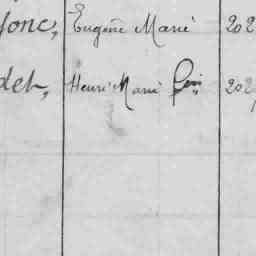 Jonc, Eugène Marie 202
det, Henri Marie 202